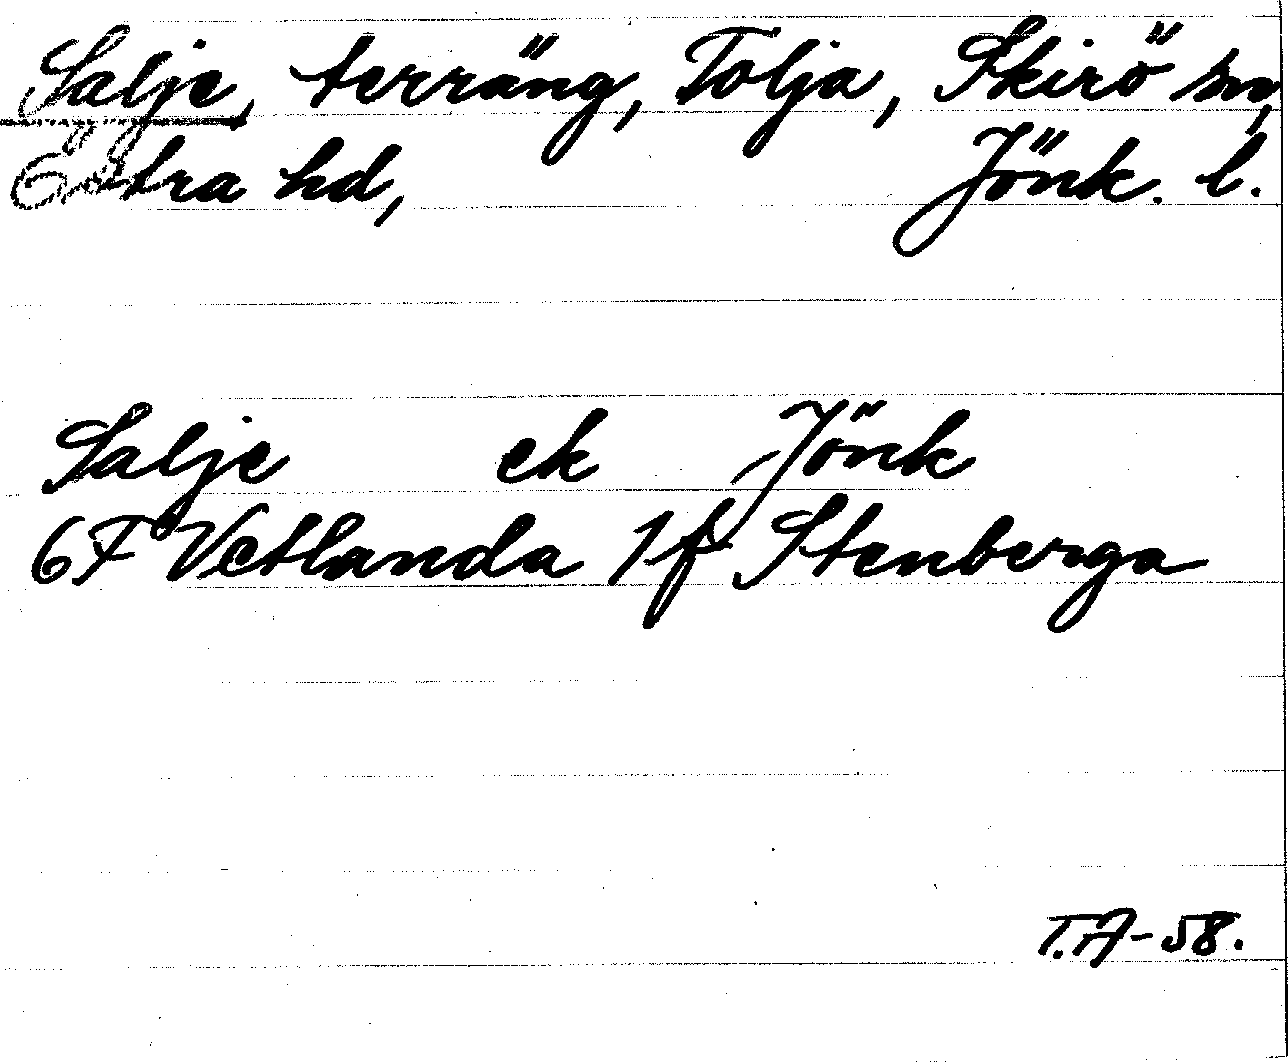 Salje, terräng, Tolja, Skirö sn,
Östra hd, Jönk. l.
Salje ek Jönk
6F Vetlanda 1f Stenberga
T.A-58.